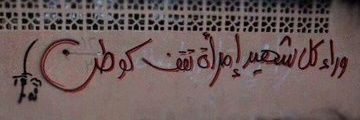 وراء كل شهيد إمرأة تقف كوطن